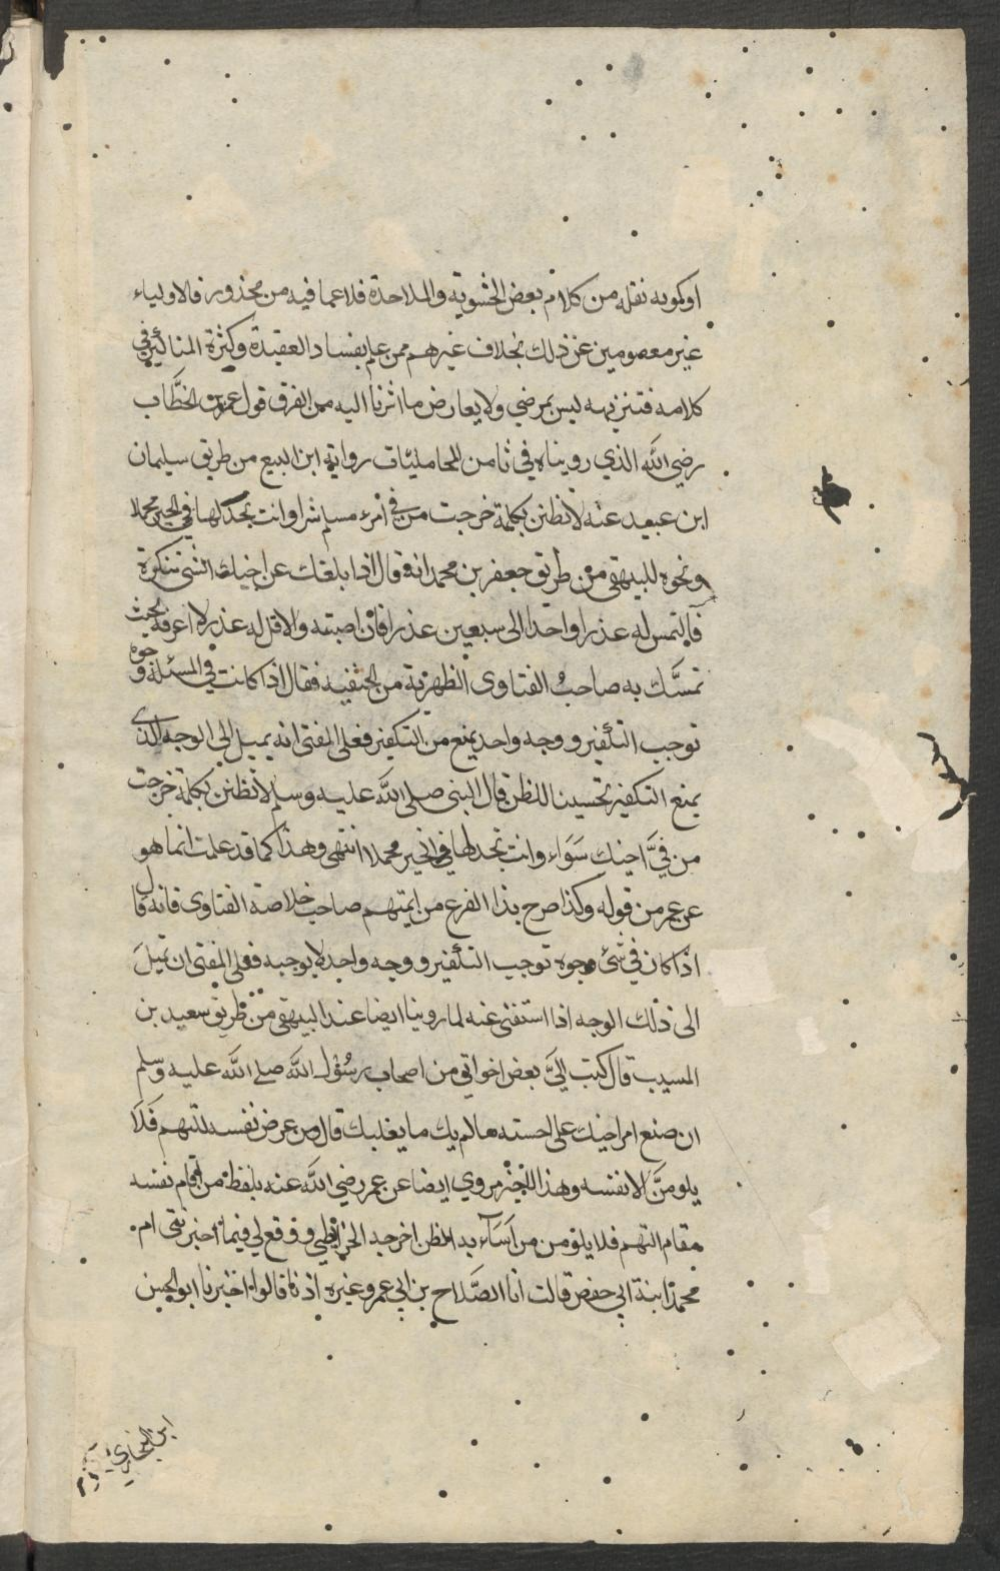 اوكونه نقله من كلام بعض الحشوية والملاحدة فلاعما فيه من محذور فالاولياء
غير معصومين عن ذلك بخلاف غيرهم ممن علم بفساد العقيدة وكثرة المناكير في
كلامه فتنزيهه ليس بمرضي ولا يعارض ما اثرنا اليه من الفرق قول عمر بن الخطاب
رضي الله الذي رويناه في ثامن المحامليات رواية ابن البيع من طريق سليمان
ابن عبيد عنه لا تظنن بكلمة خرجت من في امرء مسلم شرا وانت تجد لها في الخير محملا
ونحوه للبيهقي من طريق جعفر بن محمد انه قال اذا بلغك عن اخيك الشئ تنكرة
فالتمس له عذرا واحدا الى سبعين عذرا فان اصبته والا قل له عذر لا اعرفه بحيث
تمسَّك به صاحبُ الفتاوى الظهرية من الحنفية فقال اذا كانت في المسئلة وجوه
توجب التكفير ووجه واحد يمنع من التكفير فعلى المفتى انه يميل الى الوجه الذى
يمنع التكفير تحسينا للظن قال النبي صلى الله عليه وسلم لا تظنن بكلمة خرجت
من فيَّ اخيك سَوَاء وانت تجد لها في الخير محملا انتهى وهذا كما قد علمت انما هو
عن عمر من قوله وكذا صرح بذا الفرع من ايمتهم صاحب خلاصة الفتاوى فانه قال
اذا كان في شئ وجوه توجب التكفير ووجه واحد لا يوجبه فعلى المفتى ان تميلَ
الى ذلك الوجه اذا استفتى عنه لما روينا ايضا عند البيهقي من طريق سعيد بن
المسيب قال كتب اليَّ بعض اخواني من اصحاب رسُول الله صلى الله عليه وسلم
ان صنع امر اخيك على احسنه مالم يك ما يغلبك قال ومن عرض نفسه للتهم فلا
يلومنَّ الا نفسه وهذا الاخير مروي ايضا عن عمر رضي الله عنه بلفظ من اقام نفسه
مقام التهم فلا يلومن من اَسَاَء به الظن اخرجه الخرايطي ووقع لي فيما اخبرتنى ام
محمد ابنة ابي حفص قالت انا الصَّلاح بن ابي عمرو وغيره اذنا قالوا اخبرنا ابو الحسن
ابن البخاري